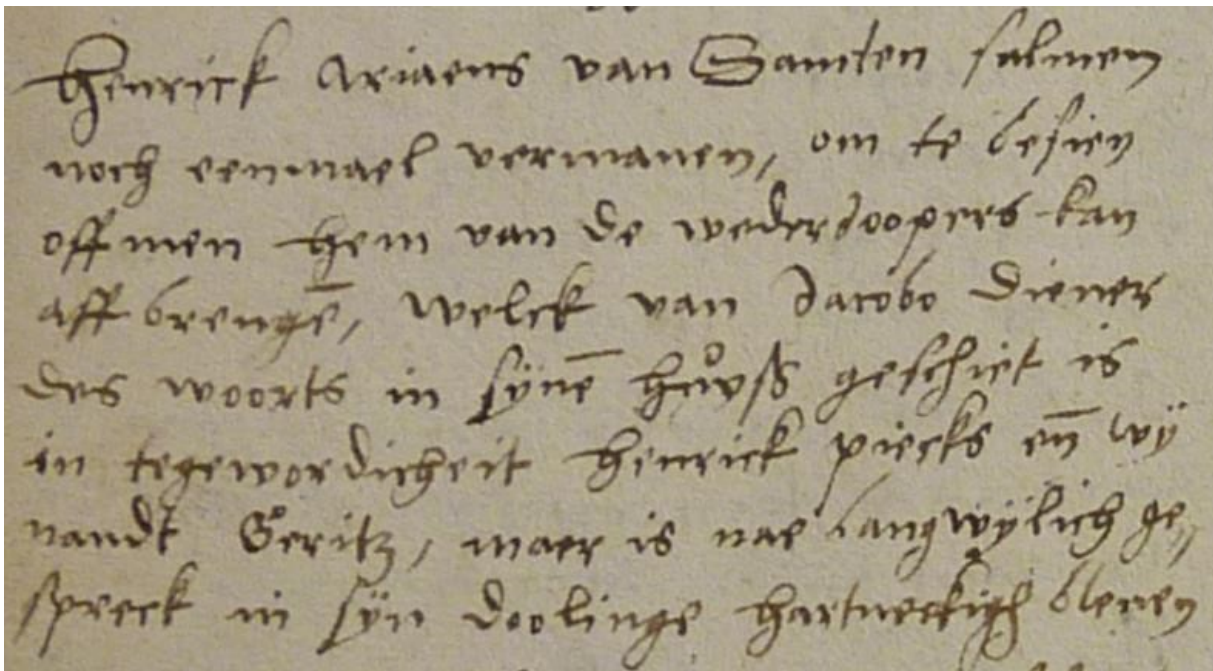 Henrick Ariaens van Santen salmen
noch eenmael vermanen, om te besien
off men hem van de wederdoopers kan
aff brengē, welck van Jacobo diener
des woorts in synē huyß geschiet is
in tegewordicheit Henrick piecks en̄ wÿ
nandt Geritz, maer is nae langwÿlich ge„
spreck in sÿn doolinge hartneckigh bleven